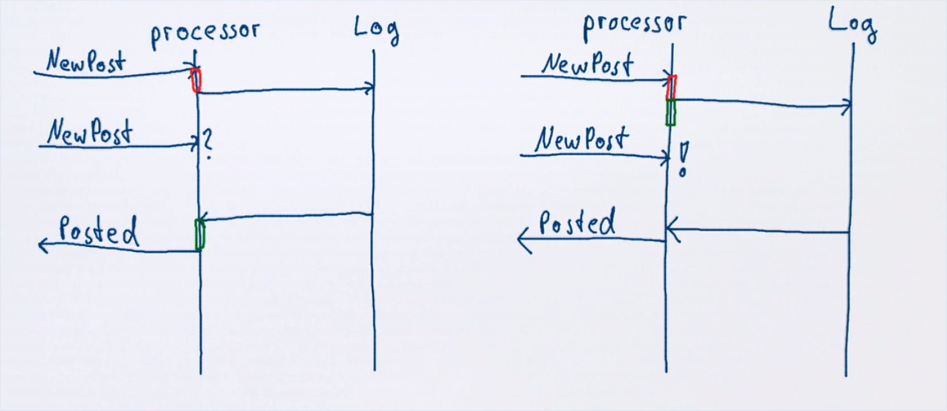 processor Log
NewPost
NewPost ?
Posted
processor Log
NewPost
NewPost !
Posted